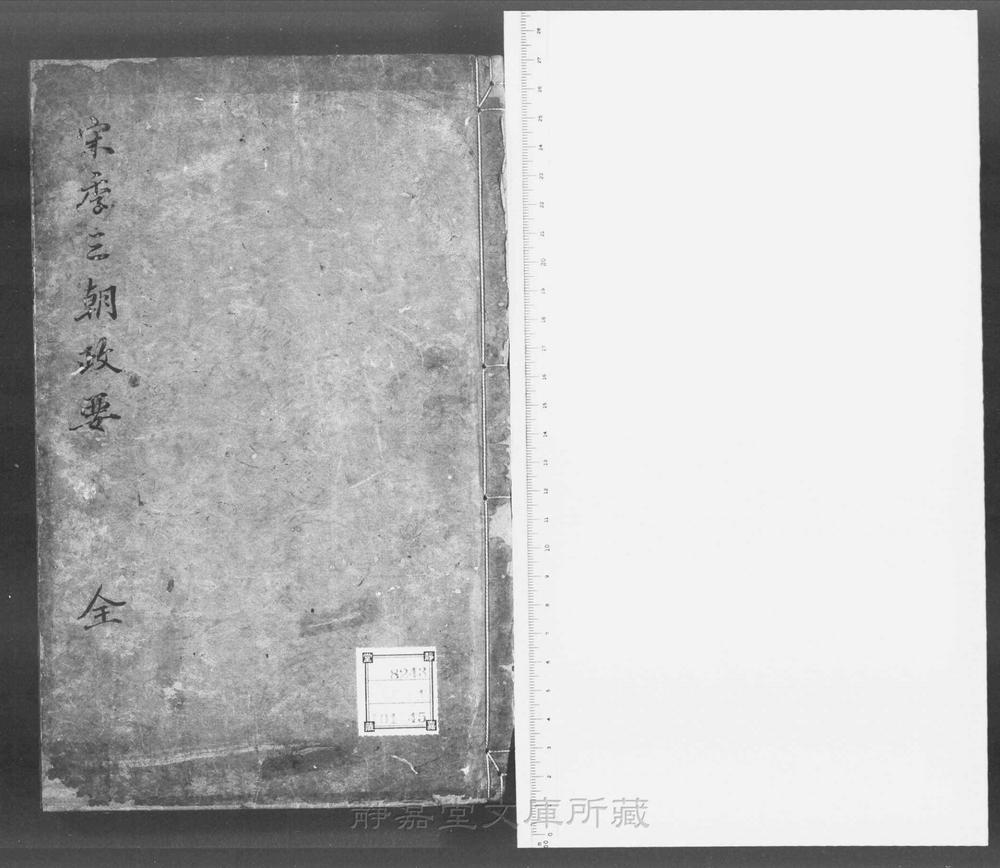 宋季三朝政要 全
8243
1
01 45
靜嘉堂文庫所藏